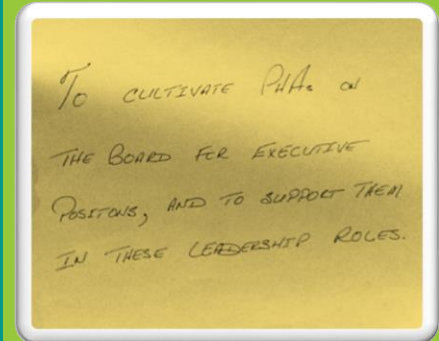 To CULTIVATE PHAs ON
THE BOARD FOR EXECUTIVE
POSITONS, AND TO SUPPORT THEM
IN THESE LEADERSHIP ROLES.